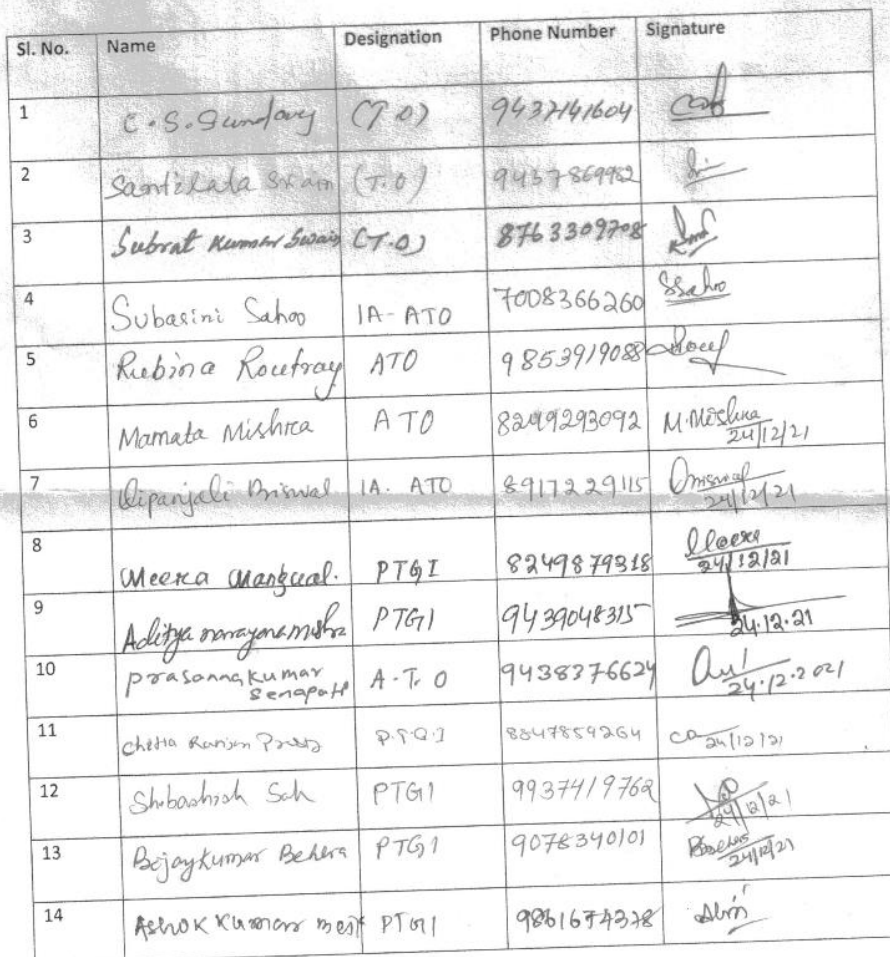 Sl. No. Name Designation Phone Number Signature
1 C. S. Sundary (T.O) 9437141604
2 Santilata Swain (T.O) 9437869982
3 Subrat Kumar Swain (T.O) 8763309708
4 Subasini Sahoo IA-ATO 7008366260 SSahoo
5 Rubina Routray ATO 9853919088
6 Mamata Mishra ATO 8249293092 M.Mishra
24/12/21
7 Dipanjali Briswal IA. ATO 8917229115
24/12/21
8 Meera Mangual. PTGI 8249879318 Meera
24/12/21
9 Aditya narayana mishra PTGI 9439048315
24.12.21
10 Prasanna Kumar
Senapati A.T.O 9438376624
24.12.2021
11 Ranjan P.T.G.I 8847859264
24/12/21
12 Shibashish Sah PTGI 9937419762
24/12/21
13 Bijaykumar Behera PTGI 9078340101 Behera
24/12/21
14 Ashok Kumar PTGI 9861674378